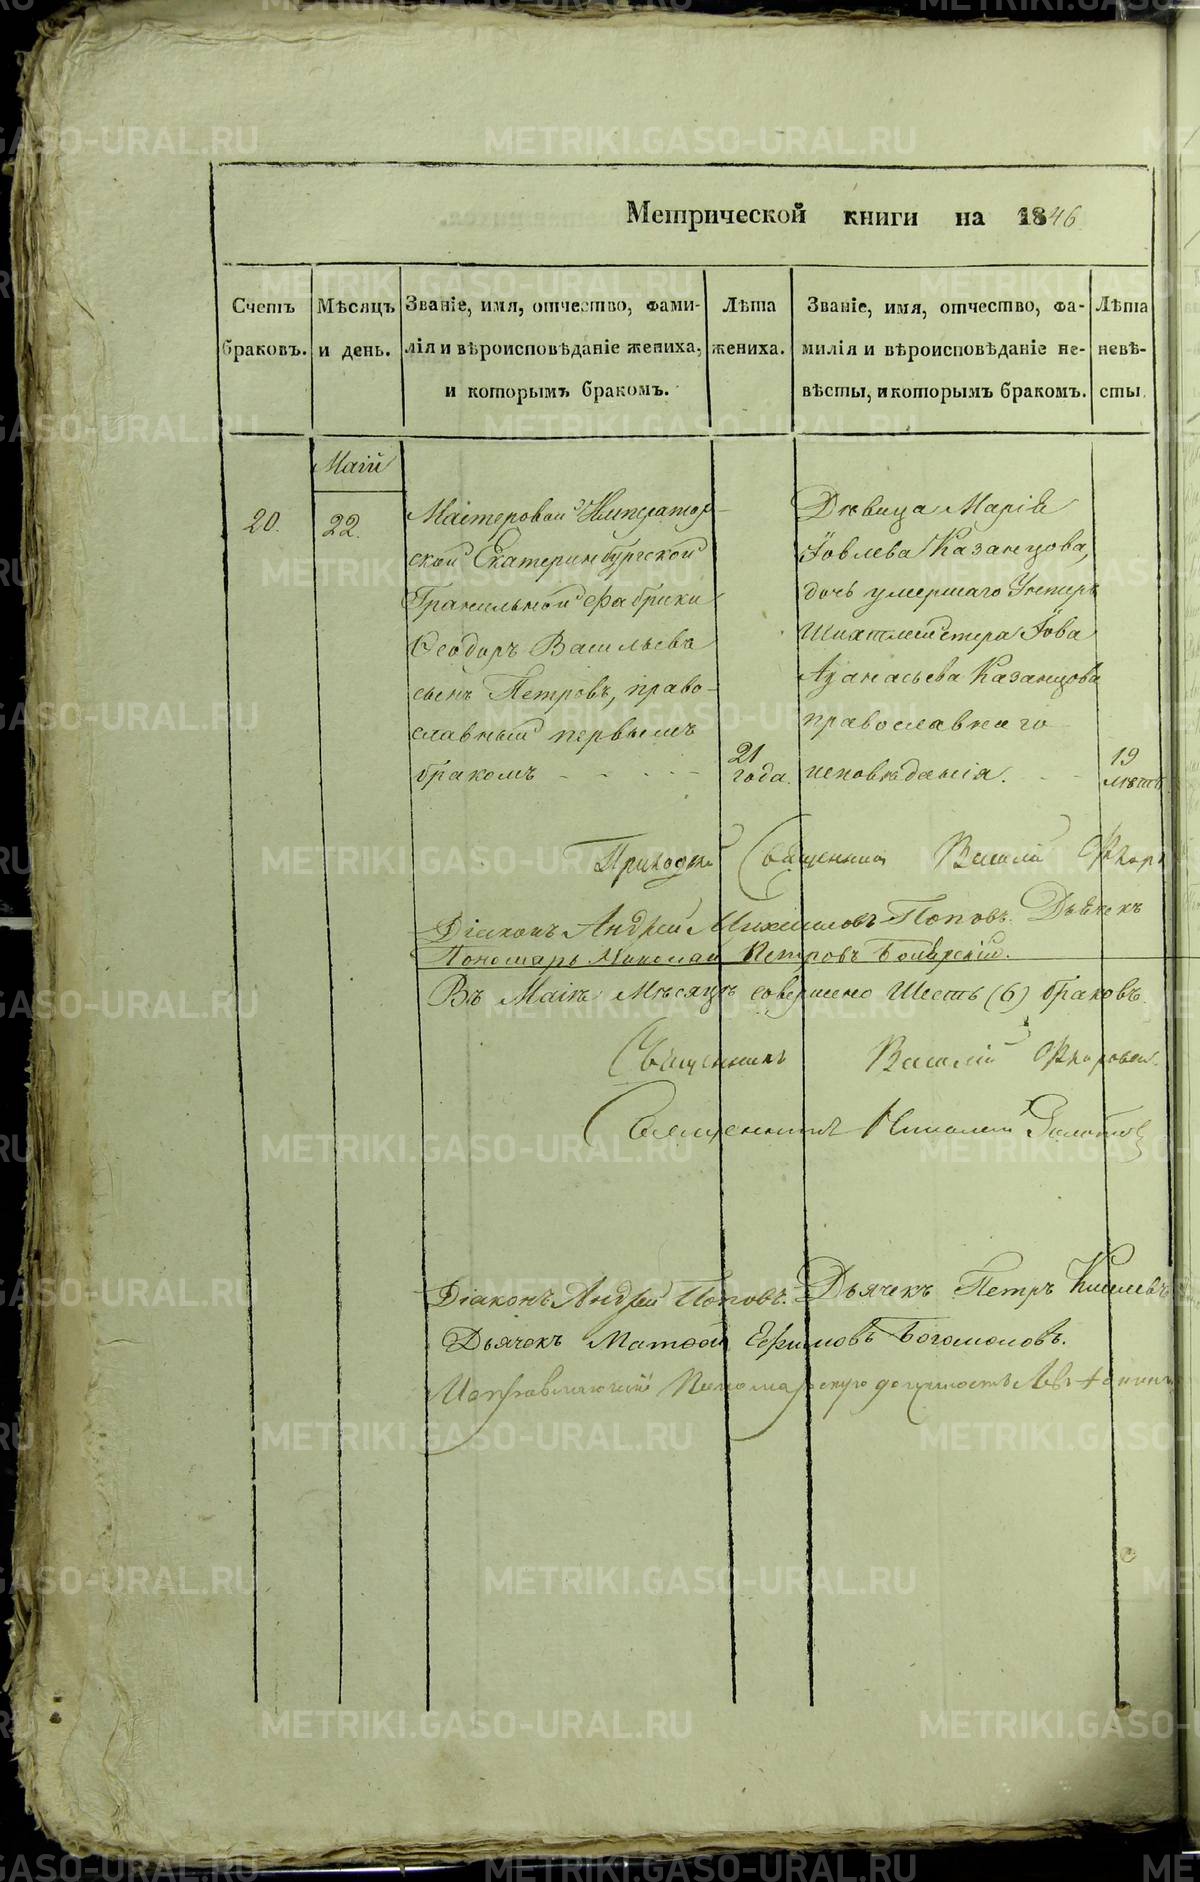 Метрической книги на 1846
Счетъ браковъ.
Мѣсяцъ и день.
Званіе, имя, отчество, фами-
лія и вѣроисповѣданіе жениха,
и которымъ бракомъ.
Лѣта
жениха.
Званіе, имя, отчество, фа-
милія и вѣроисповѣданіе не-
вѣсты, и которымъ бракомъ.
Лѣта
невѣ-
сты.
Маій
20.
22.
Мастеровой Император-
ской Екатеринбургской
Гранильной Фабрики
Ѳеодоръ Васильевъ
сынъ Петровъ, право-
славный первымъ
бракомъ
21
года.
Дѣвица Марія
Іовлева Казанцова,
дочь умершаго Унтеръ
Шихтмейстера Іова
Аѳанасьева Казанцова
православнаго
исповѣданія.
19
лѣтъ.
Приходскій Священникъ Василій
Діаконъ Андрей Михайловъ Поповъ. Дьячекъ
Пономарь Николай Петровъ Боярскій.
Въ Маіѣ Мѣсяцѣ совершено Шесть (6) браковъ.
Священникъ Василій
Священникъ Николай
Діаконъ Андрей Поповъ. Дьячекъ Петръ Киселевъ
Дьячекъ Матѳей Ефимовъ Богомоловъ.
Исправляющій Пономарскую должность
METRIKI.GASO-URAL.RU